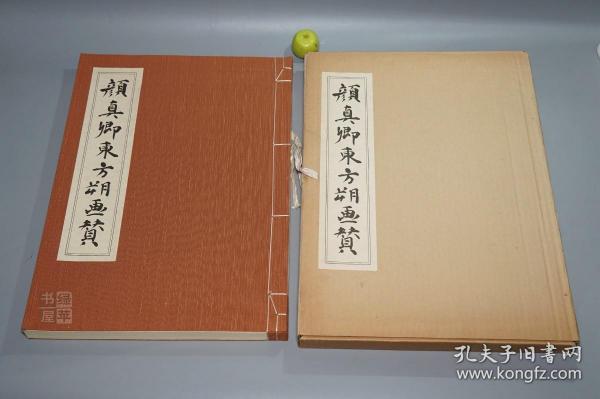 顔真卿東方朔画賛
顔真卿東方朔画賛
绿苹
书屋
孔夫子旧书网
www.kongfz.com